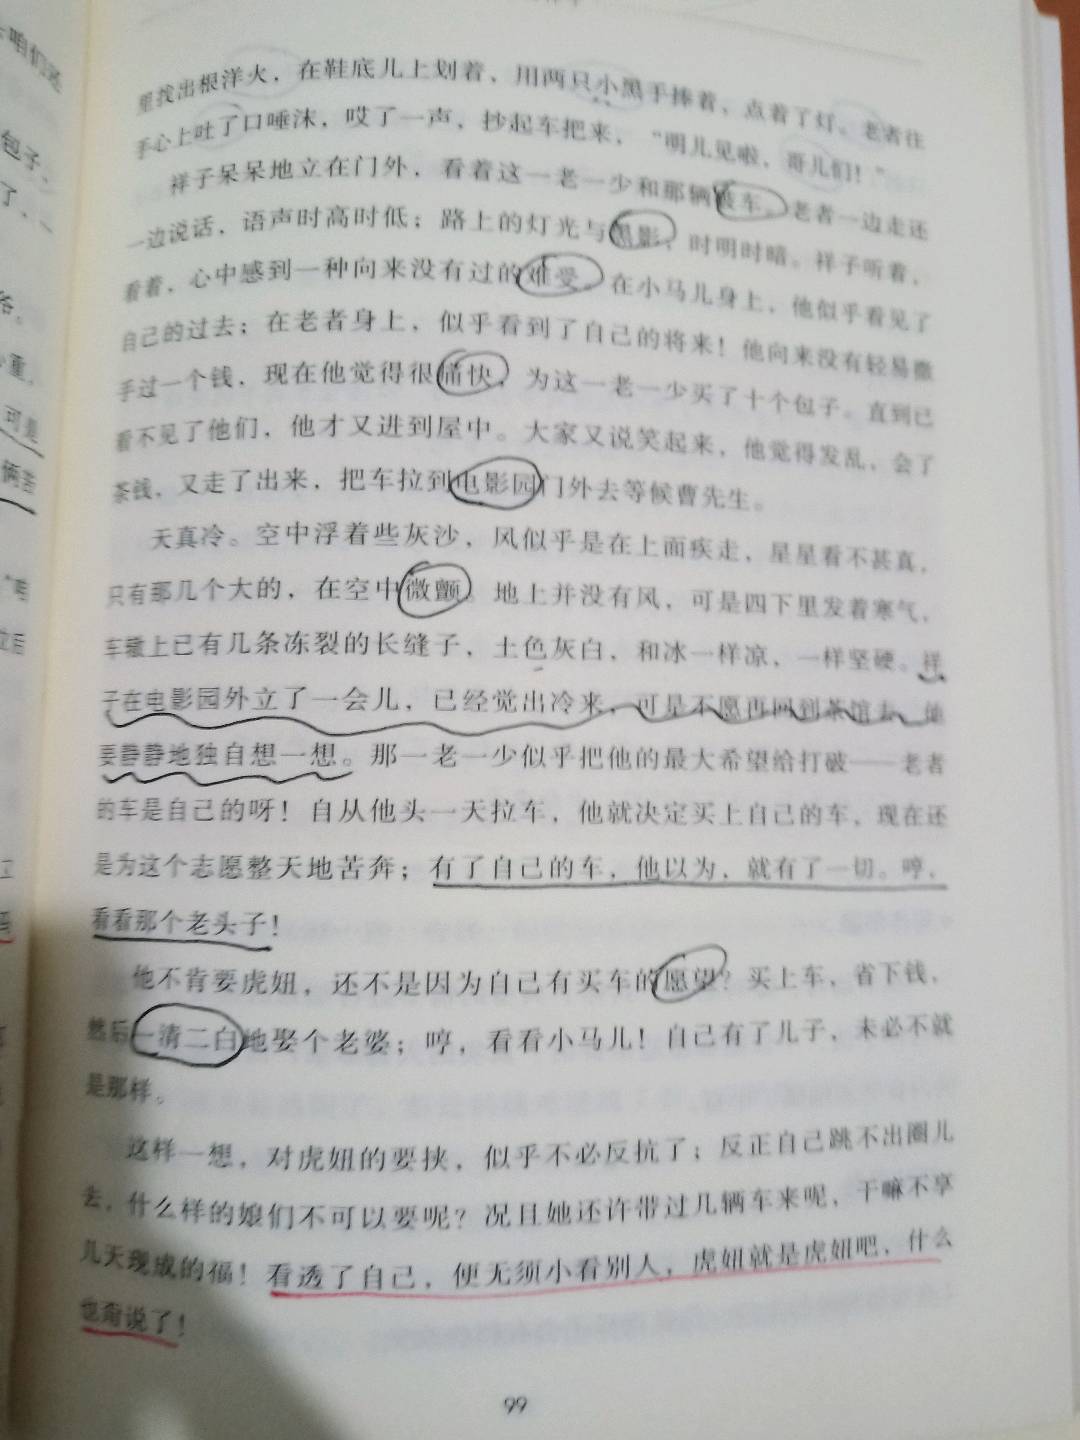 里找出根洋火，在鞋底儿上划着，用两只小黑手捧着，点着了灯。老者往
手心上吐了口唾沫，哎了一声，抄起车把来，“明儿见啦，哥儿们！”
祥子呆呆地立在门外，看着这一老一少和那辆破车。老者一边走还
一边说话，语声时高时低；路上的灯光与黑影，时明时暗。祥子听着，
看着，心中感到一种向来没有过的难受。在小马儿身上，他似乎看见了
自己的过去；在老者身上，似乎看到了自己的将来！他向来没有轻易撒
手过一个钱，现在他觉得很痛快，为这一老一少买了十个包子。直到已
看不见了他们，他才又进到屋中。大家又说笑起来，他觉得发乱，会了
茶钱，又走了出来，把车拉到电影园门外去等候曹先生。
天真冷。空中浮着些灰沙，风似乎是在上面疾走，星星看不甚真，
只有那几个大的，在空中微颤。地上并没有风，可是四下里发着寒气，
车辙上已有几条冻裂的长缝子，土色灰白，和冰一样凉，一样坚硬。祥
子在电影园外立了一会儿，已经觉出冷来，可是不愿再回到茶馆去。他
要静静地独自想一想。那一老一少似乎把他的最大希望给打破——老者
的车是自己的呀！自从他头一天拉车，他就决定买上自己的车，现在还
是为这个志愿整天地苦奔；有了自己的车，他以为，就有了一切。哼，
看看那个老头子！
他不肯要虎妞，还不是因为自己有买车的愿望？买上车，省下钱，
然后一清二白地娶个老婆；哼，看看小马儿！自己有了儿子，未必不就
是那样。
这样一想，对虎妞的要挟，似乎不必反抗了；反正自己跳不出圈儿
去，什么样的娘们不可以要呢？况且她还许带过几辆车来呢，干嘛不享
几天现成的福！看透了自己，便无须小看别人，虎妞就是虎妞吧，什么
也甭说了！
99